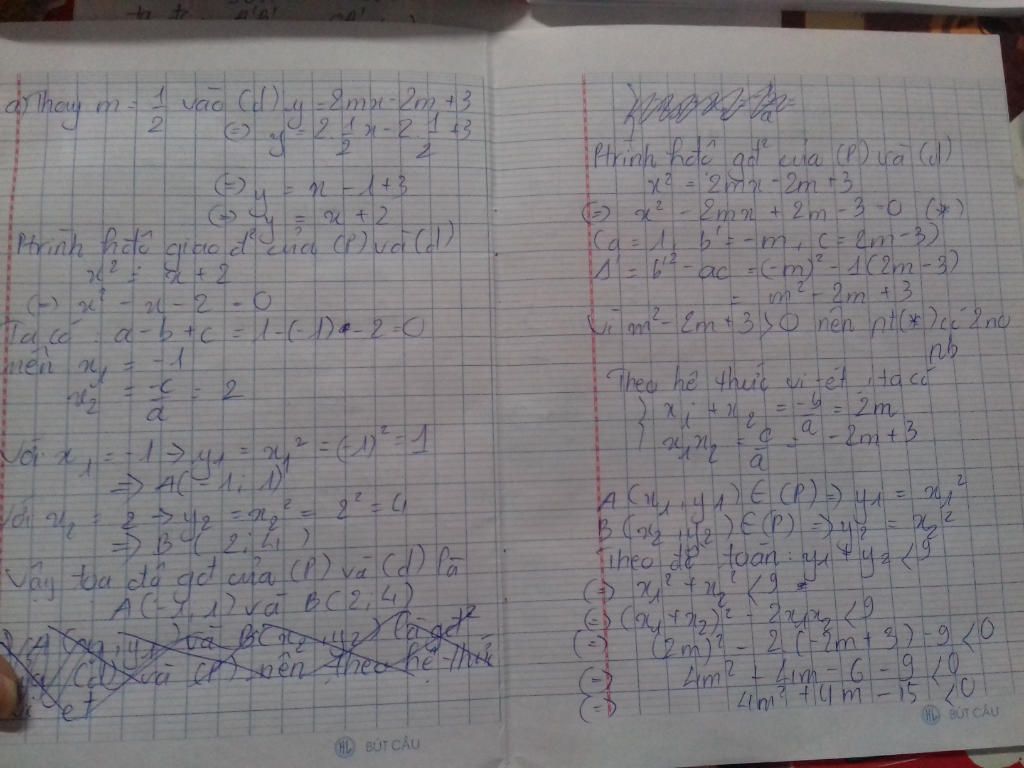 a) Thay m = 1/2 vào (d) y = 2mx - 2m + 3
(=) y = 2.1/2x - 2.1/2 + 3
(=) y = x - 1 + 3
(=) y = x + 2
Ptrình hđộ giao đ² của (P) và (d)
x² = x + 2
(=) x² - x - 2 = 0
Ta có : a - b + c = 1 - (-1) - 2 = 0
nên x₁ = -1
x₂ = -c/a = 2
Với x₁ = -1 → y₁ = x₁² = (-1)² = 1
=> A(-1; 1)
Với x₂ = 2 → y₂ = x₂² = 2² = 4
=> B (2; 4)
Vậy tọa độ gđ của (P) và (d) là
A(-1; 1) và B(2; 4)
(x₁, y₁) và B(x₂, y₂) là gđ²
của (d) và (P) nên theo hệ thức
vi et
Ptrình hđộ gđ² của (P) và (d)
x² = 2mx - 2m + 3
(=) x² - 2mx + 2m - 3 = 0 (*)
(a = 1, b' = -m, c = 2m - 3)
Δ' = b'² - ac = (-m)² - 1(2m - 3)
= m² - 2m + 3
Vì m² - 2m + 3 > 0 nên pt(*) có 2 no
pb
Theo hệ thức vi ét, ta có
{ x₁ + x₂ = -b/a = 2m
x₁x₂ = c/a = -2m + 3
A(x₁, y₁) ∈ (P) => y₁ = x₁²
B(x₂, y₂) ∈ (P) => y₂ = x₂²
Theo đề toán: y₁ + y₂ < 9
(=) x₁² + x₂² < 9
(=) (x₁ + x₂)² - 2x₁x₂ < 9
(=) (2m)² - 2(-2m + 3) - 9 < 0
(=) 4m² + 4m - 6 - 9 < 0
(=) 4m² + 4m - 15 < 0
HL BÚT CÂU
HL BÚT CÂU